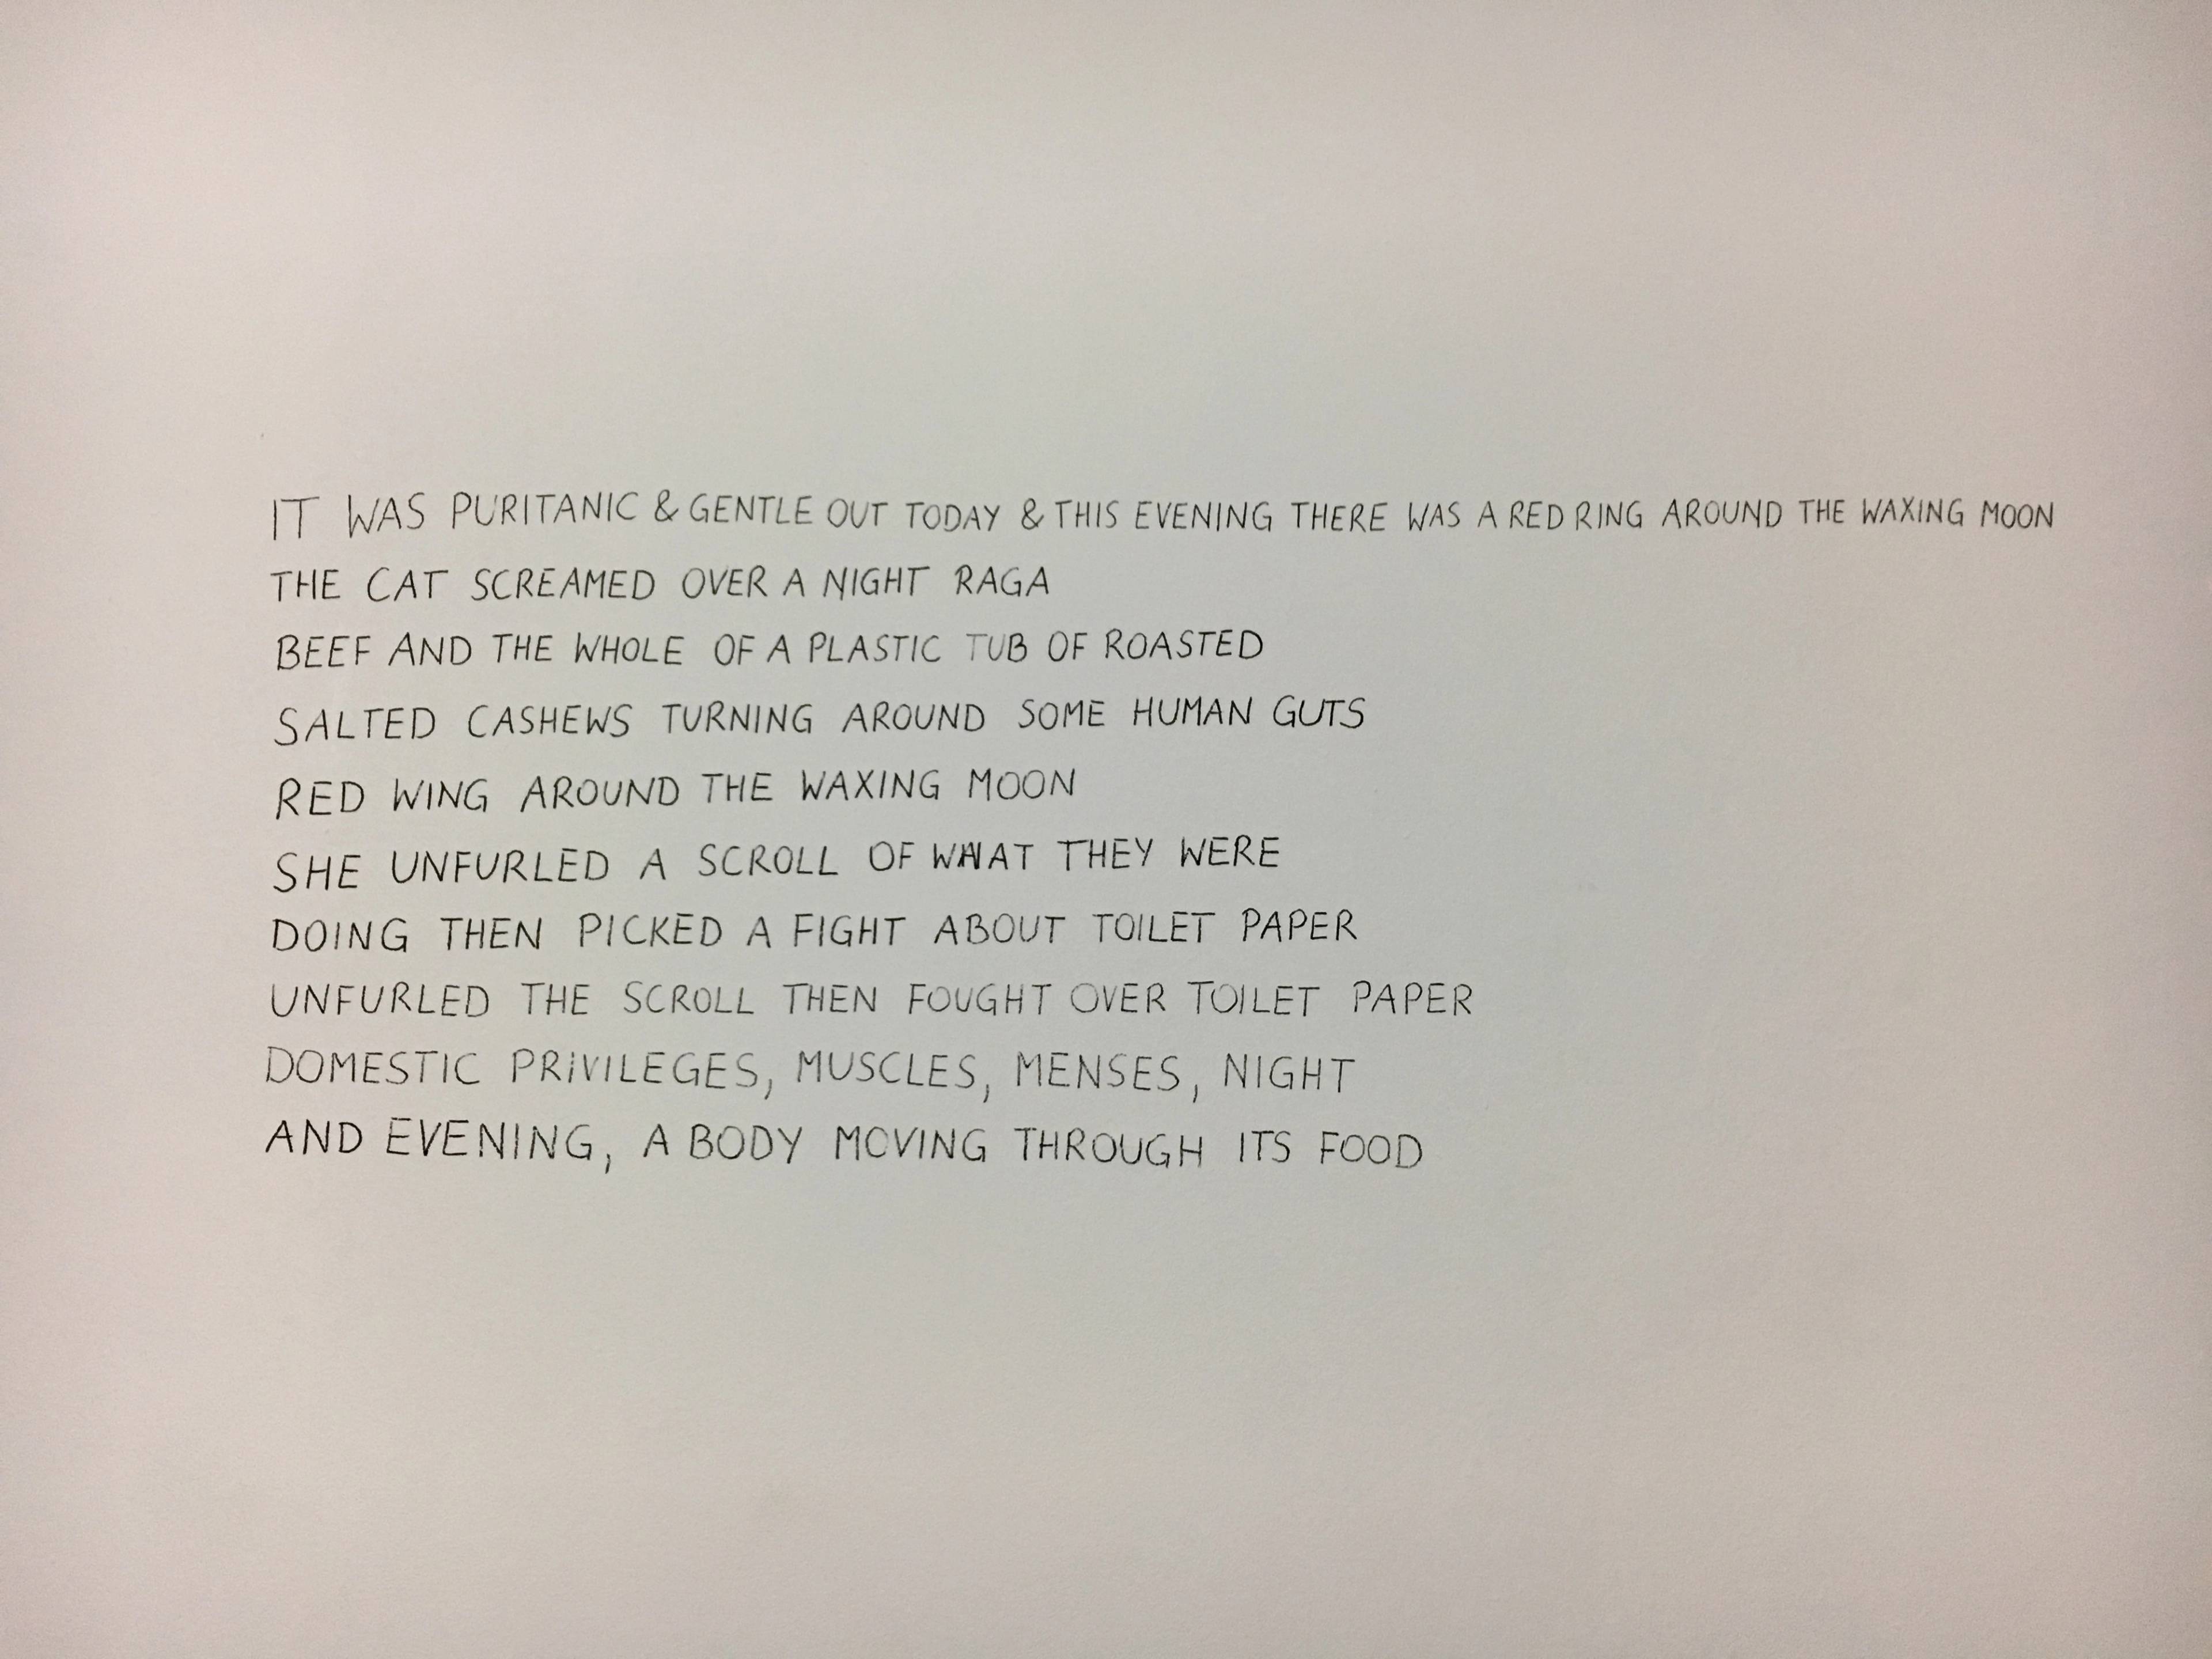 IT WAS PURITANIC & GENTLE OUT TODAY & THIS EVENING THERE WAS A RED RING AROUND THE WAXING MOON
THE CAT SCREAMED OVER A NIGHT RAGA
BEEF AND THE WHOLE OF A PLASTIC TUB OF ROASTED
SALTED CASHEWS TURNING AROUND SOME HUMAN GUTS
RED WING AROUND THE WAXING MOON
SHE UNFURLED A SCROLL OF WHAT THEY WERE
DOING THEN PICKED A FIGHT ABOUT TOILET PAPER
UNFURLED THE SCROLL THEN FOUGHT OVER TOILET PAPER
DOMESTIC PRIVILEGES, MUSCLES, MENSES, NIGHT
AND EVENING, A BODY MOVING THROUGH ITS FOOD